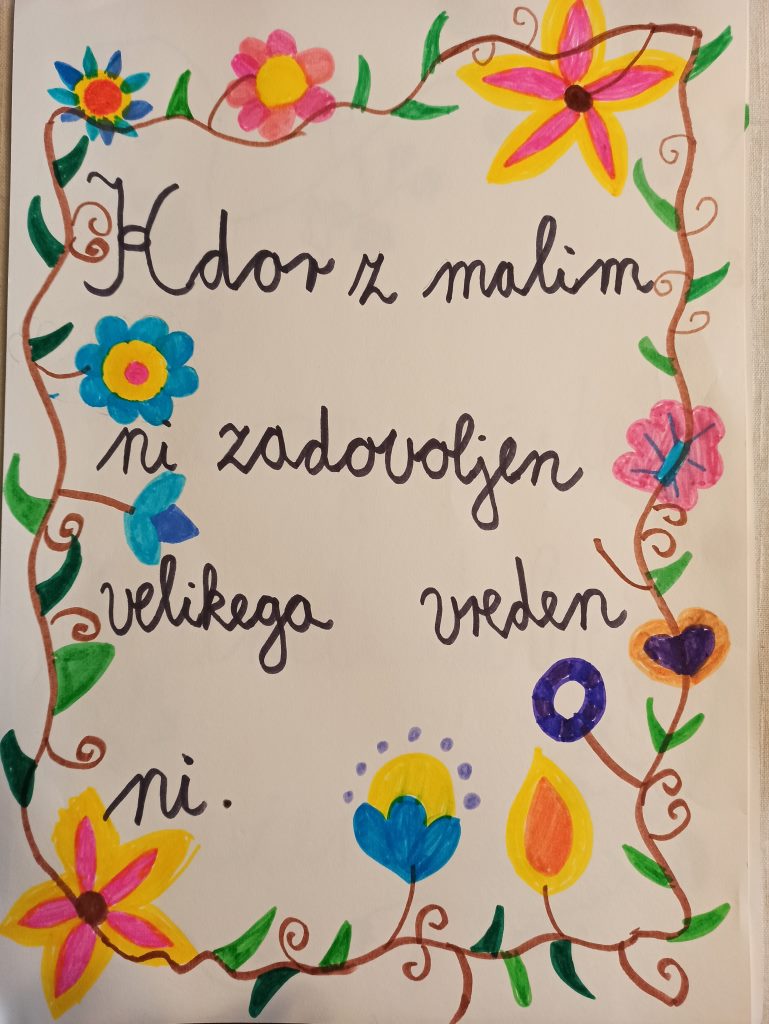 Kdor z malim
ni zadovoljen
velikega vreden
ni.